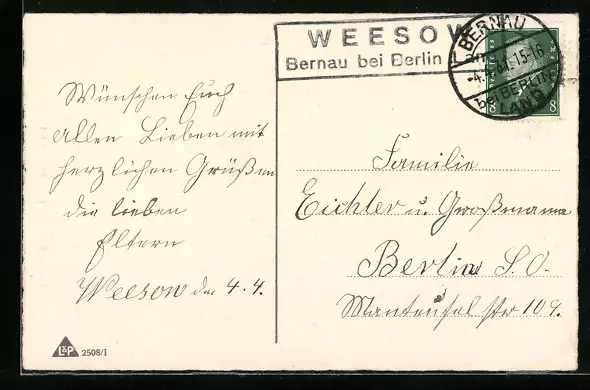 WEESOW
Bernau bei Berlin L
BERNAU
-4. 31. 15-16
b. BERLIN
LAND
8 8
Wünschen Euch
allen Lieben mit
herzlichen Grüßen
die lieben
Eltern
Weesow den 4.4.
Familie
Eichler u. Großmama
Berlin S.O.
Manteufel str 109.
L&P 2508/I